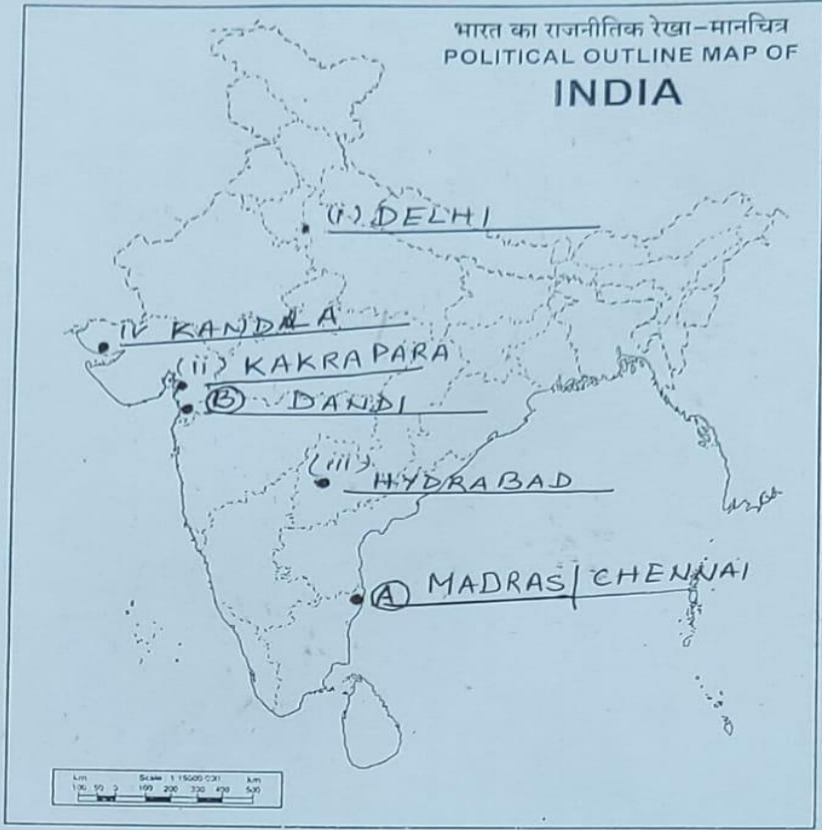 भारत का राजनीतिक रेखा-मानचित्र
POLITICAL OUTLINE MAP OF
INDIA
(i) DELHI
iv KANDALA
(ii) KAKRAPARA
(B) DANDI
(iii)
HYDRABAD
(A) MADRAS/CHENNAI
km Scale km
100 50 0 100 200 300 400 500